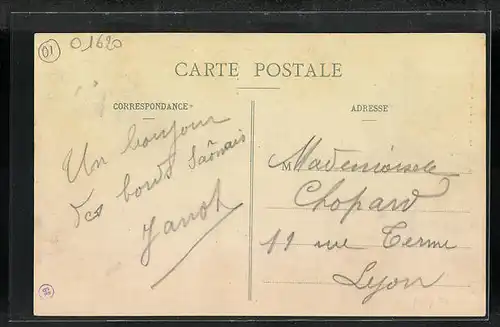 01
01620
CARTE POSTALE
CORRESPONDANCE
ADRESSE
Un bonjour
des bords Saônais
Janot
M Mademoiselle
Chopard
11 rue Terme
Lyon